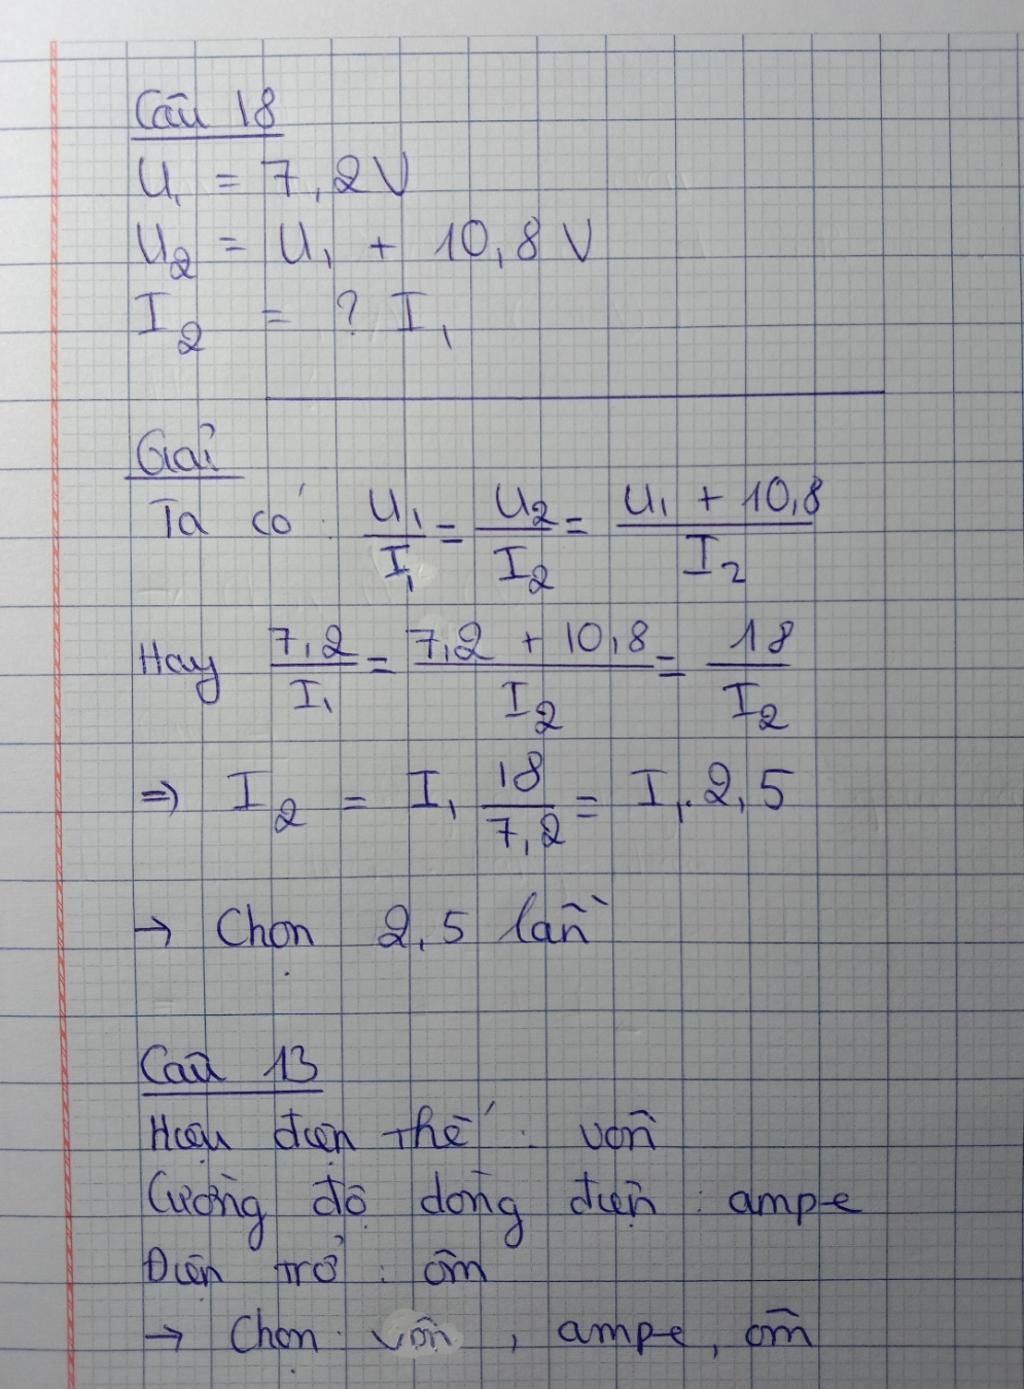 Câu 18
U₁ = 7,2V
U₂ = U₁ + 10,8 V
I₂ = ? I₁
Giải
Ta có: U₁/I₁ = U₂/I₂ = (U₁ + 10,8)/I₂
Hay 7,2/I₁ = (7,2 + 10,8)/I₂ = 18/I₂
⇒ I₂ = I₁ 18/7,2 = I₁. 2,5
→ Chọn 2,5 lần
Câu 13
Hiệu điện thế : vôn
Cường độ dòng điện : ampe
Điện trở : ôm
→ Chọn vôn, ampe, ôm